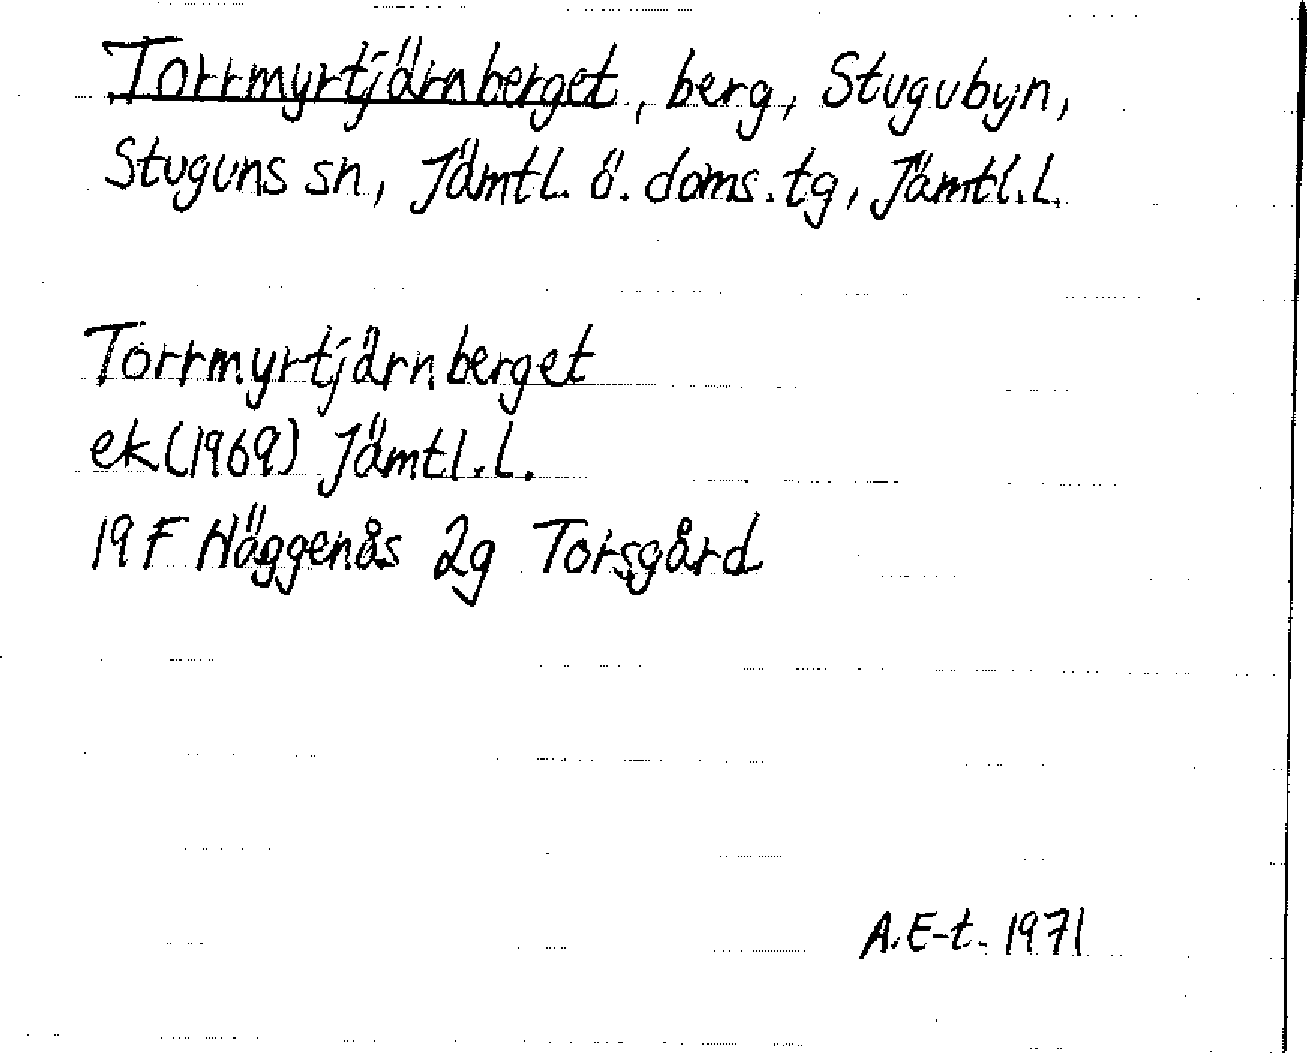 Torrmyrtjärnberget, berg, Stugubyn,
Stuguns sn, Jämtl. ö. doms.tg, Jämtl.L.
Torrmyrtjärnberget
ek(1969) Jämtl.L.
19F Häggenås 2g Torsgård
A.E-t. 1971